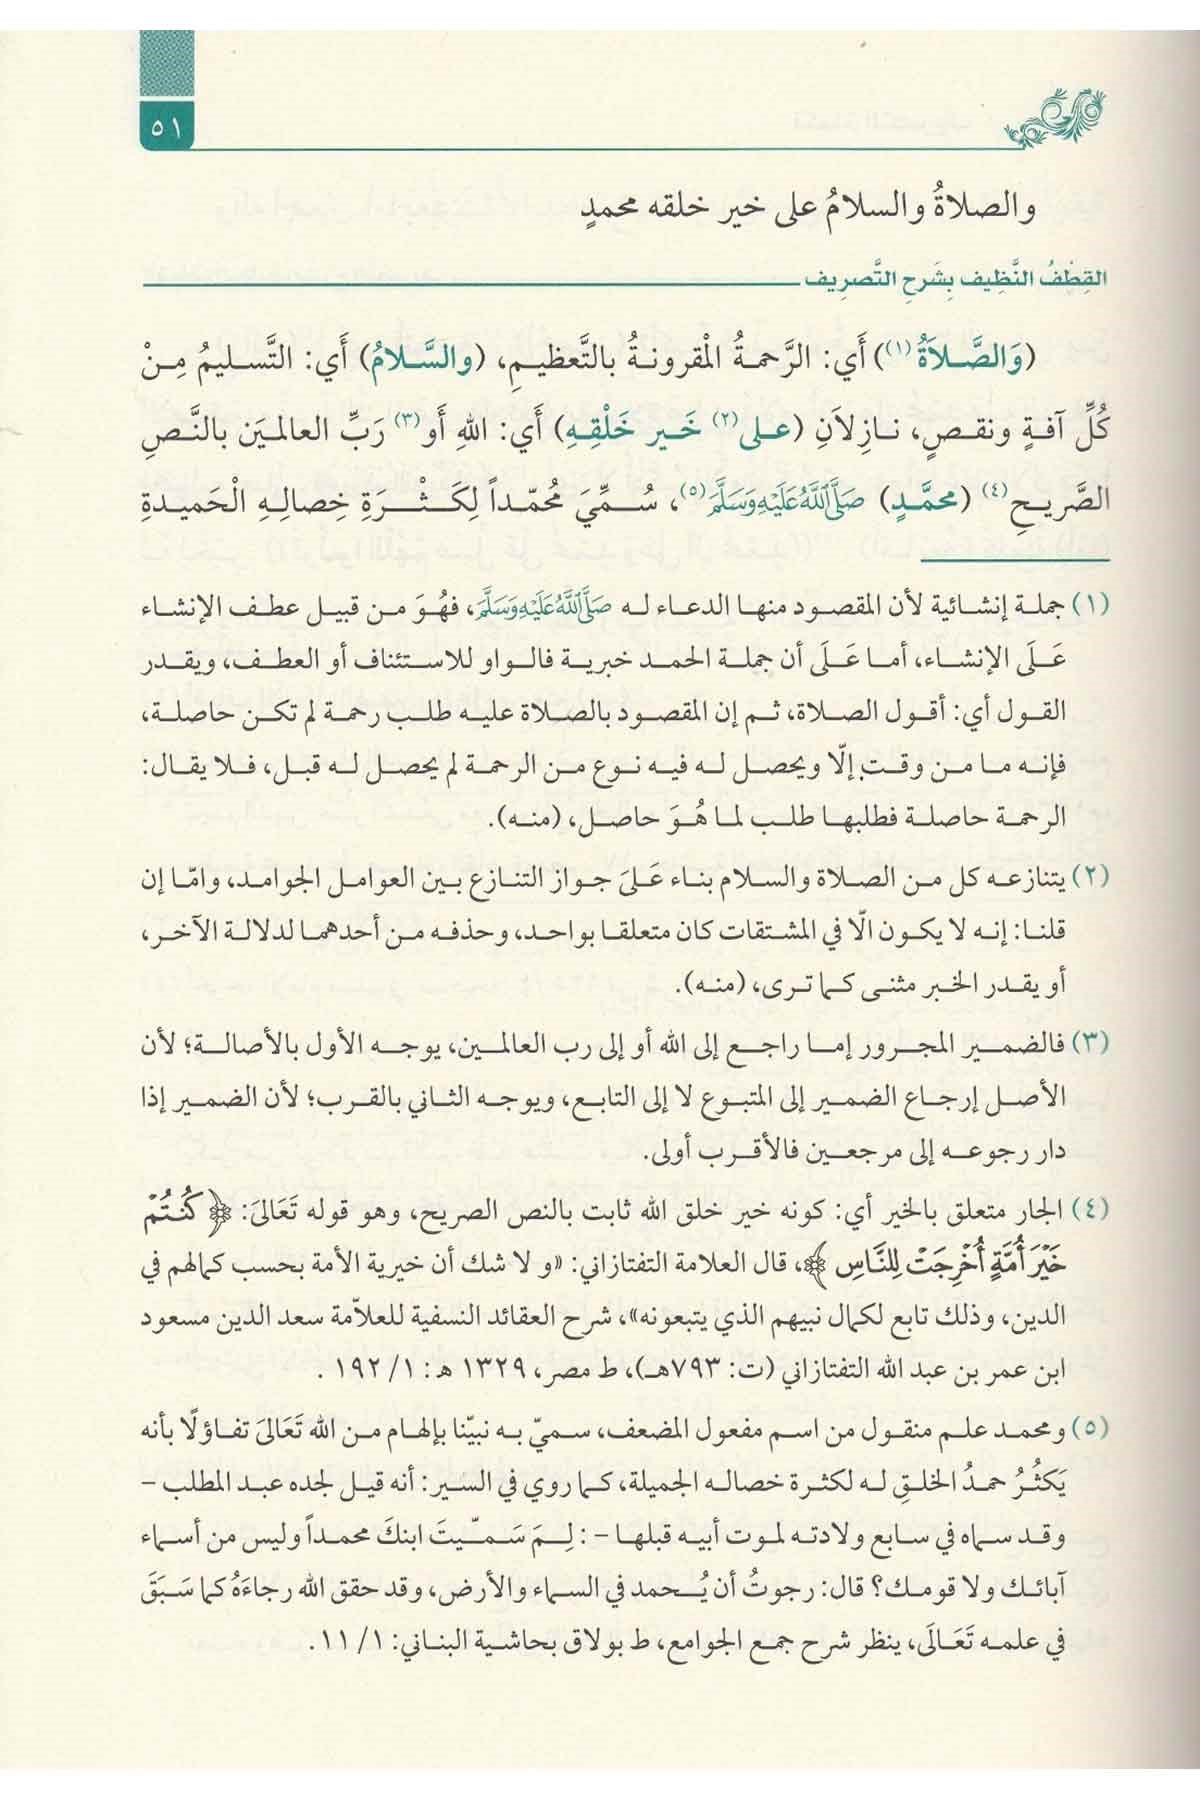 ٥١
والصلاةُ والسلامُ على خير خلقه محمدٍ
القِطْفُ النَّظِيف بِشَرحِ التَّصرِيف
(وَالصَّلاَةُ(١)) أَي: الرَّحمةُ المْقرونةُ بالتَّعظيمِ، (والسَّلامُ) أَي: التَّسليمُ مِنْ
كُلِّ آفةٍ ونقصٍ، نازِلاَنِ (على(٢) خَير خَلْقِهِ) أَي: اللهِ أَو(٣) رَبِّ العالميَن بالنَّصِ
الصَّريحِ(٤) (محمَّدٍ) صَلَّى اللَّهُ عَلَيْهِ وَسَلَّمَ(٥)، سُمِّيَ مُحمّداً لِكَثْرَةِ خِصالِهِ الْحَميدةِ
(١) جملة إنشائية لأن المقصود منها الدعاء له صَلَّى اللَّهُ عَلَيْهِ وَسَلَّمَ، فهُوَ من قبيل عطف الإنشاء
عَلَى الإنشاء، أما عَلَى أن جملة الحمد خبرية فالواو للاستئناف أو العطف، ويقدر
القول أي: أقول الصلاة، ثم إن المقصود بالصلاة عليه طلب رحمة لم تكن حاصلة،
فإنه ما من وقت إلّا ويحصل له فيه نوع من الرحمة لم يحصل له قبل، فلا يقال:
الرحمة حاصلة فطلبها طلب لما هُوَ حاصل، (منه).
(٢) يتنازعه كل من الصلاة والسلام بناء عَلىَ جواز التنازع بين العوامل الجوامد، وامّا إن
قلنا: إنه لا يكون الّا في المشتقات كان متعلقا بواحد، وحذفه من أحدهما لدلالة الآخر،
أو يقدر الخبر مثنى كما ترى، (منه).
(٣) فالضمير المجرور إما راجع إلى الله أو إلى رب العالمين، يوجه الأول بالأصالة؛ لأن
الأصل إرجاع الضمير إلى المتبوع لا إلى التابع، ويوجه الثاني بالقرب؛ لأن الضمير إذا
دار رجوعه إلى مرجعين فالأقرب أولى.
(٤) الجار متعلق بالخير أي: كونه خير خلق الله ثابت بالنص الصريح، وهو قوله تَعَالىَ: ﴿كُنتُمْ
خَيْرَ أُمَّةٍ أُخْرِجَتْ لِلنَّاسِ﴾، قال العلامة التفتازاني: «و لا شك أن خيرية الأمة بحسب كمالهم في
الدين، وذلك تابع لكمال نبيهم الذي يتبعونه»، شرح العقائد النسفية للعلاّمة سعد الدين مسعود
ابن عمر بن عبد الله التفتازاني (ت: ٧٩٣هـ)، ط مصر، ١٣٢٩ هـ: ١/ ١٩٢ .
(٥) ومحمد علم منقول من اسم مفعول المضعف، سميّ به نبيّنا بإلهام من الله تَعَالىَ تفاؤلًا بأنه
يَكثُرُ حمدُ الخلقِ له لكثرة خصاله الجميلة، كما روي في السير: أنه قيل لجده عبد المطلب –
وقد سماه في سابع ولادته لموت أبيه قبلها – : لِمَ سَمّيتَ ابنكَ محمداً وليس من أسماء
آبائك ولا قومك؟ قال: رجوتُ أن يُحمد في السماء والأرض، وقد حقق الله رجاءَهُ كما سَبَقَ
في علمه تَعَالَى، ينظر شرح جمع الجوامع، ط بولاق بحاشية البناني: ١/ ١١.